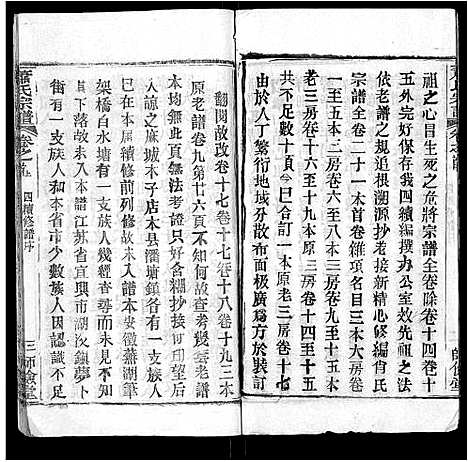 祖之心目生死之危將宗譜全卷除卷十四卷十
五外完好保存我四續編撰办公室效先祖之法
依老譜之資追根溯源抄老接新精心修肖氏
宗譜全二十一本首卷雜項名目三本大房卷
一至五本二房卷六至八本三房卷九至十五本
老三房卷十六至十九本原三房卷十四至十五
共十六本損今已合訂一本原老三房卷十七
由於人丁繁衍地域分散布面極廣為方於裝訂
翻閱故改卷十七卷十七卷十八卷十九三本
原老譜卷九第廿六頁不知何故查考幾老譜
本均無此頁無法考證只能照抄接於資料
入諒之麻城木子店木县潘塘鎮有一支族人
巳與本届續修前來入譜本安徽蕪湖筆
架橋白水塘有一支族人幾經查尋而未見不知
其下落故未入本譜江苏宜興市湖㳇鎮夢卜
村有一支族人和本省市少數族人因認識不足
蕭氏宗譜
卷之首
四續修譜序
三师儉堂